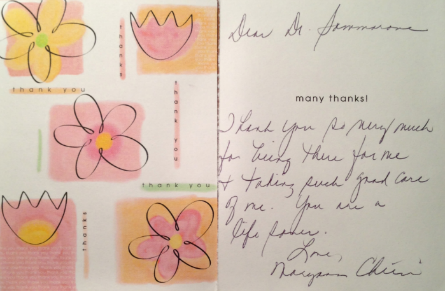 thanks
thank you
thank you
thank you
thanks
Dear Dr. Sammarone
many thanks!
Thank you so very much
for being there for me
& taking such good care
of me. You are a
life saver.
Love,
Maryann